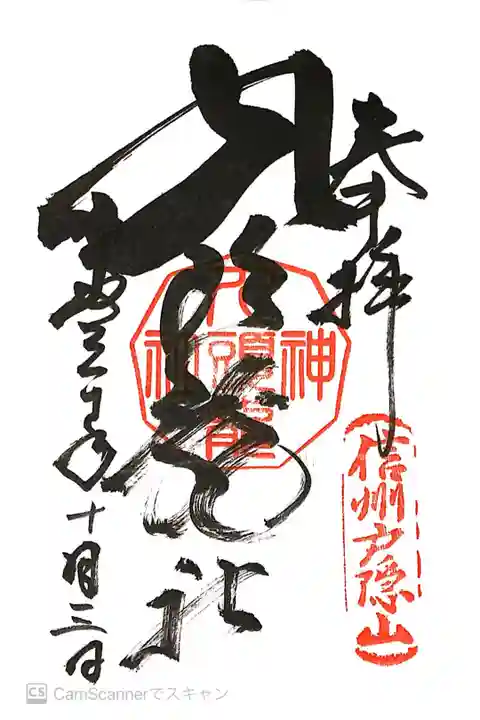 奉拝
信州戸隠山
九頭龍社
九頭龍
神
社
十月三日
CS CamScannerでスキャン